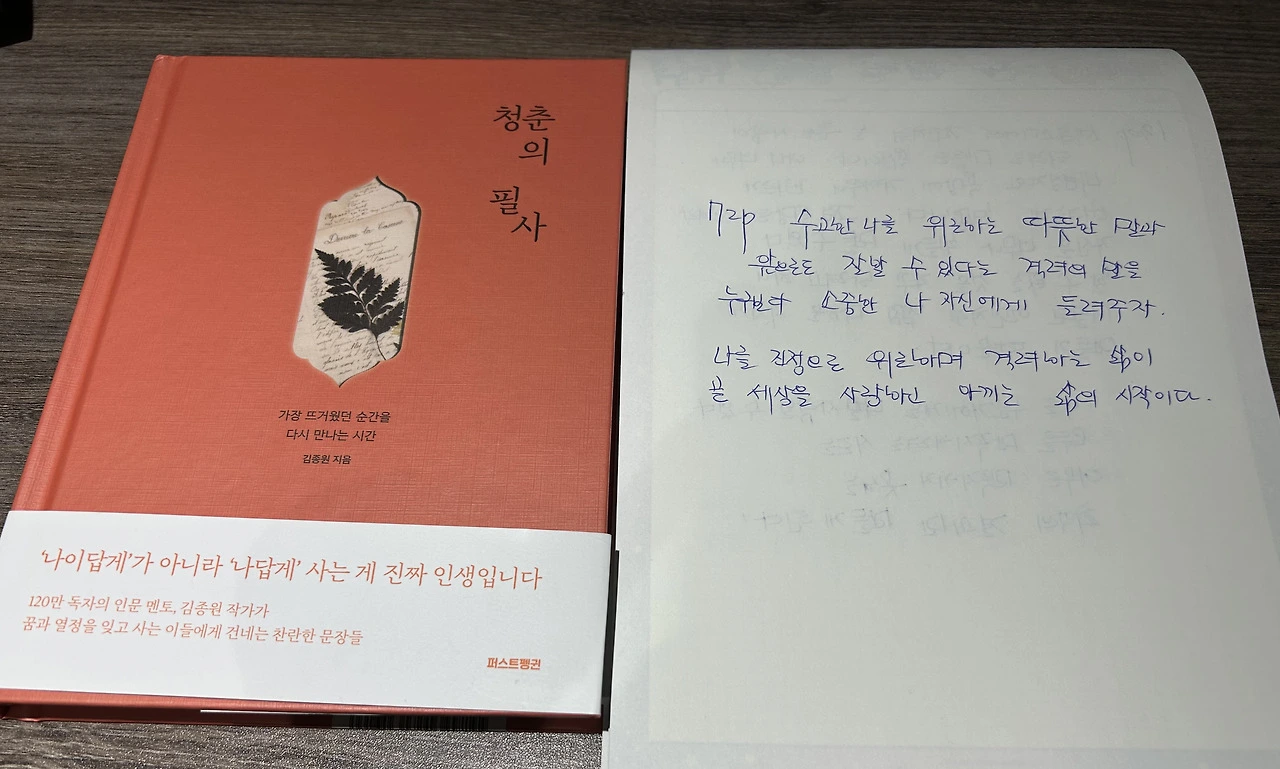 청춘
의
필
사
가장 뜨거웠던 순간을
다시 만나는 시간
김종원 지음
'나이답게'가 아니라 '나답게' 사는 게 진짜 인생입니다
120만 독자의 인문 멘토, 김종원 작가가
꿈과 열정을 잊고 사는 이들에게 건네는 찬란한 문장들
퍼스트펭귄
72p 수고한 나를 위로하는 따뜻한 말과
앞으로도 잘할 수 있다는 격려의 말을
누구보다 소중한 나 자신에게 들려주자.
나를 진정으로 위로하며 격려하는 삶이
곧 세상을 사랑하고 아끼는 삶의 시작이다.